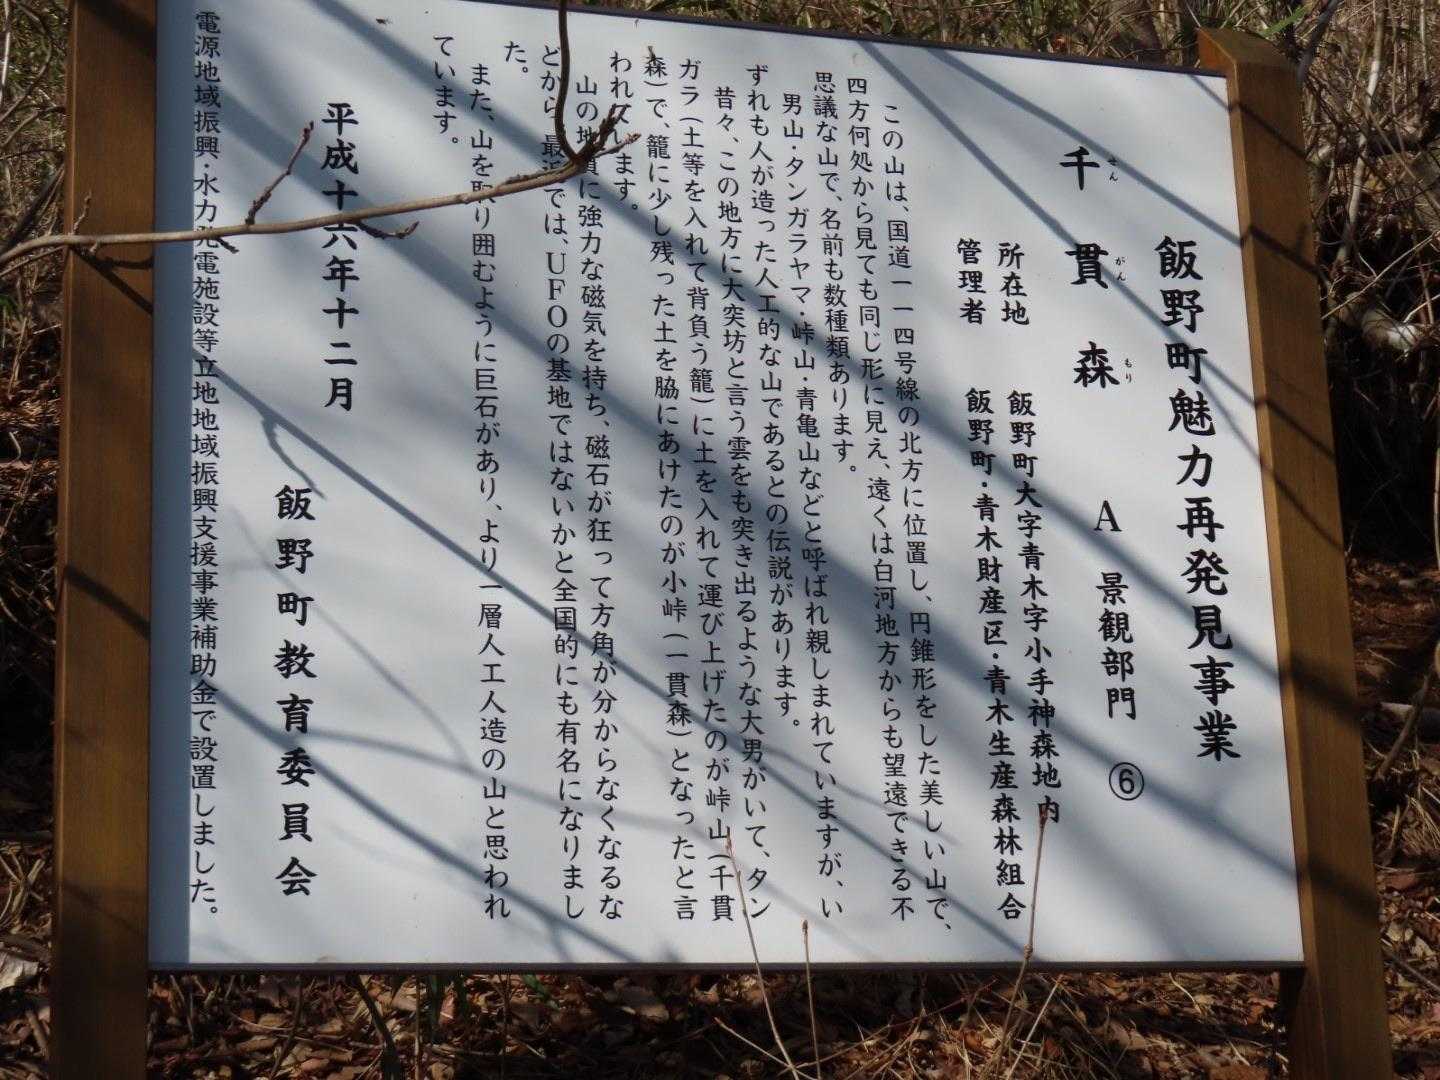 飯野町魅力再発見事業
千貫森 A 景観部門 ⑥
せんがんもり
所在地 飯野町大字青木字小手神森地内
管理者 飯野町・青木財産区・青木生産森林組合
この山は、国道一一四号線の北方に位置し、円錐形をした美しい山で、
四方何処から見ても同じ形に見え、遠くは白河地方からも望遠できる不
思議な山で、名前も数種類あります。
男山・タンガラヤマ・峠山・青亀山などと呼ばれ親しまれていますが、い
ずれも人が造った人工的な山であるとの伝説があります。
昔々、この地方に大突坊と言う雲をも突き出るような大男がいて、タン
ガラ(土等を入れて背負う籠)に土を入れて運び上げたのが峠山(千貫
森)で、籠に少し残った土を脇にあけたのが小峠(一貫森)となったと言
われています。
山の地質に強力な磁気を持ち、磁石が狂って方角が分からなくなるな
どから、最近では、UFOの基地ではないかと全国的にも有名になりまし
た。
また、山を取り囲むように巨石があり、より一層人工人造の山と思われ
ています。
平成十六年十二月
飯野町教育委員会
電源地域振興・水力発電施設等立地地域振興支援事業補助金で設置しました。